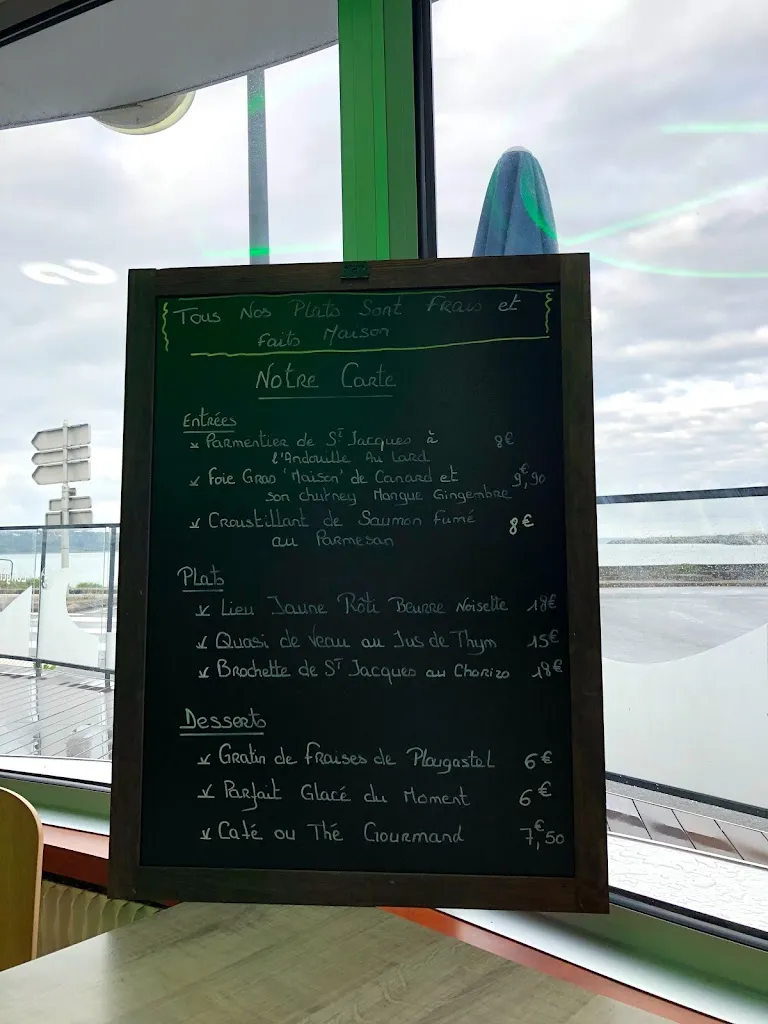 Tous Nos Plats Sont Frais et
faits Maison
Notre Carte
Entrées
Parmentier de St Jacques à 8€
l'Andouille Au Lard
Foie Gras "Maison" de Canard et 9,90€
son chutney Mangue Gingembre
Croustillant de Saumon Fumé 8€
au Parmesan
Plats
Lieu Jaune Rôti Beurre Noisette 18€
Quasi de Veau au Jus de Thym 15€
Brochette de St Jacques au Chorizo 18€
Desserts
Gratin de fraises de Plougastel 6€
Parfait Glacé du Moment 6€
Café ou Thé Gourmand 7,50€